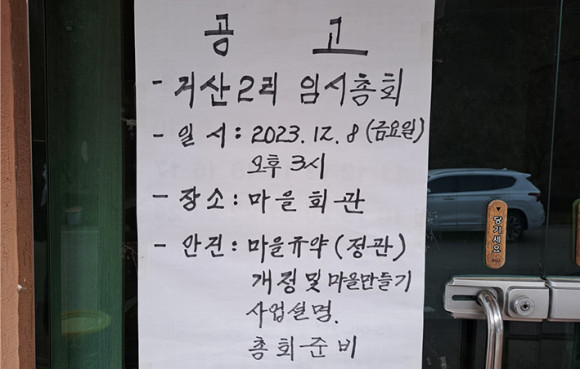 공 고
- 거산2리 임시총회
- 일 시 : 2023. 12. 8 (금요일)
오후 3시
- 장소 : 마을 회관
- 안건 : 마을규약 (정관)
개정 및 마을만들기
사업설명.
총회준비
당기세요